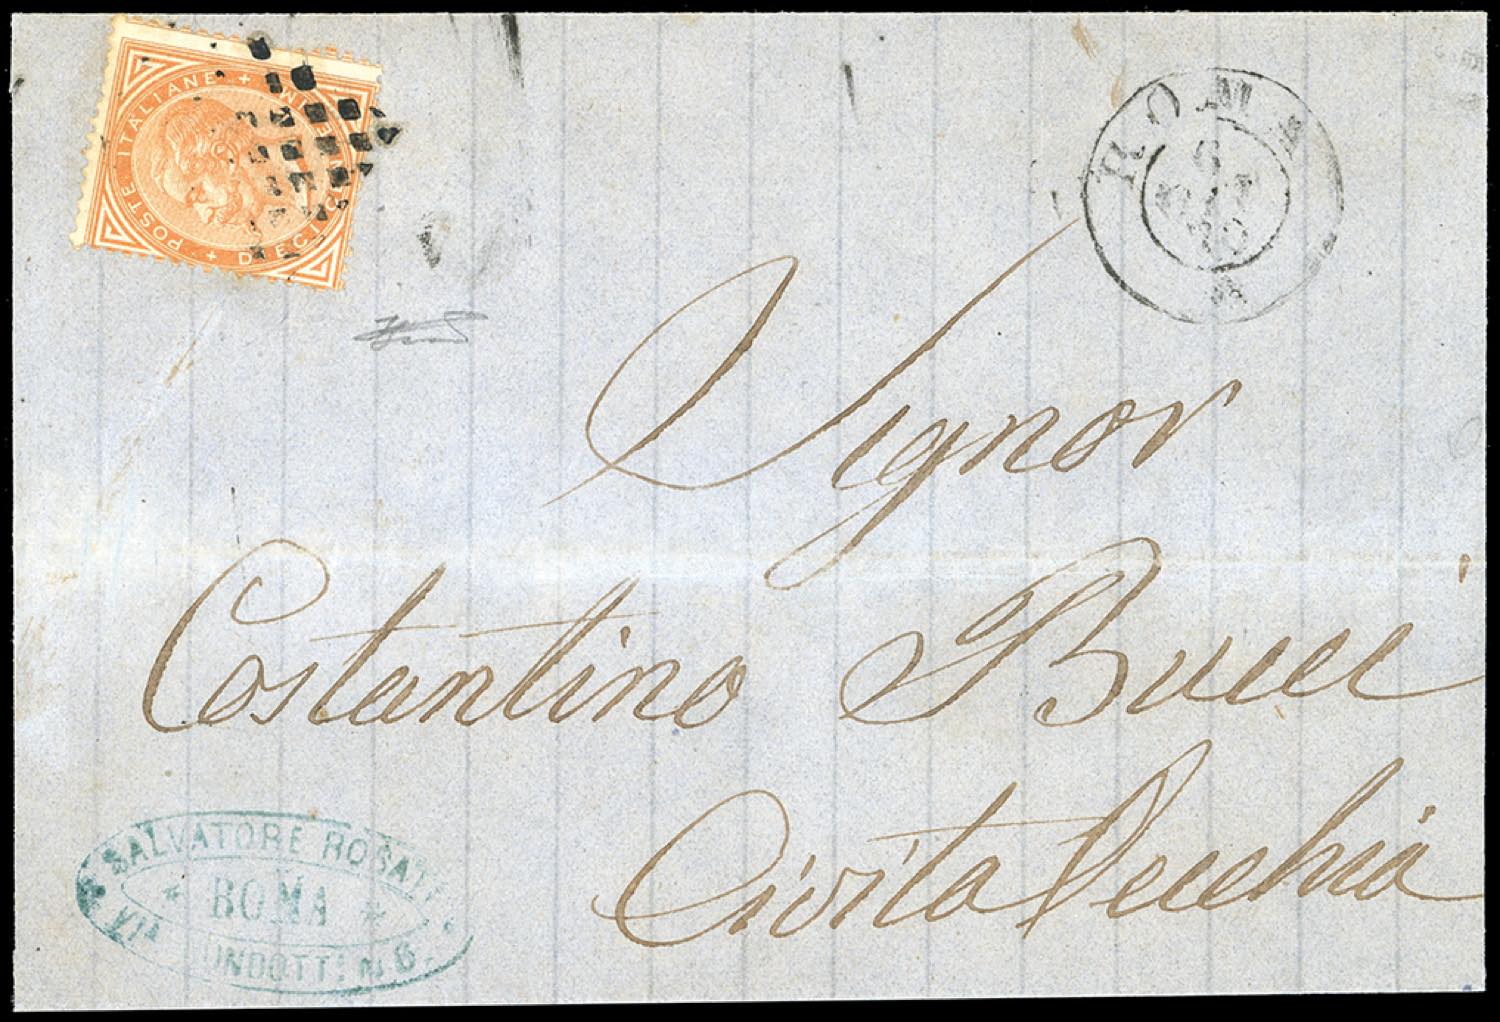 POSTE ITALIANE + DIECI CENTESIMI +
ROMA
6
70
Signor
Costantino Bucci
Civita Vecchia
SALVATORE ROSATI
ROMA
VIA CONDOTTI N 6